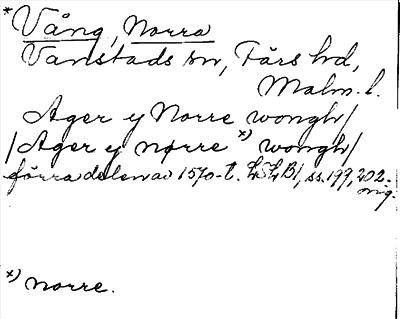 * Vång, Norra
Vanstads sn, Färs hd,
Malm. l.
Ager y Norre wongh/
/Ager y nørre x) wongh/
förra delen av 1570-t. LLB1, ss. 199, 202.
orig.
x) norre.